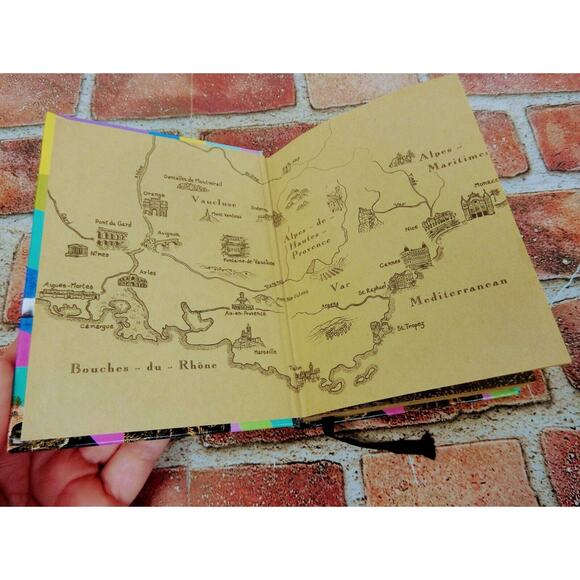 Dentelles de Montmirail
Orange
Vaucluse
Mont Ventoux
Pont du Gard
Avignon
Nîmes
Fontaine-de-Vaucluse
Arles
Aigues-Mortes
Camargue
Aix-en-Provence
Marseille
Bouches - du - Rhône
Toulon
Alpes de
Hautes -
Provence
Var
Argens
St. Raphael
Cannes
Nice
Var
Monaco
Alpes -
Maritimes
Mediterranean
St. Tropez